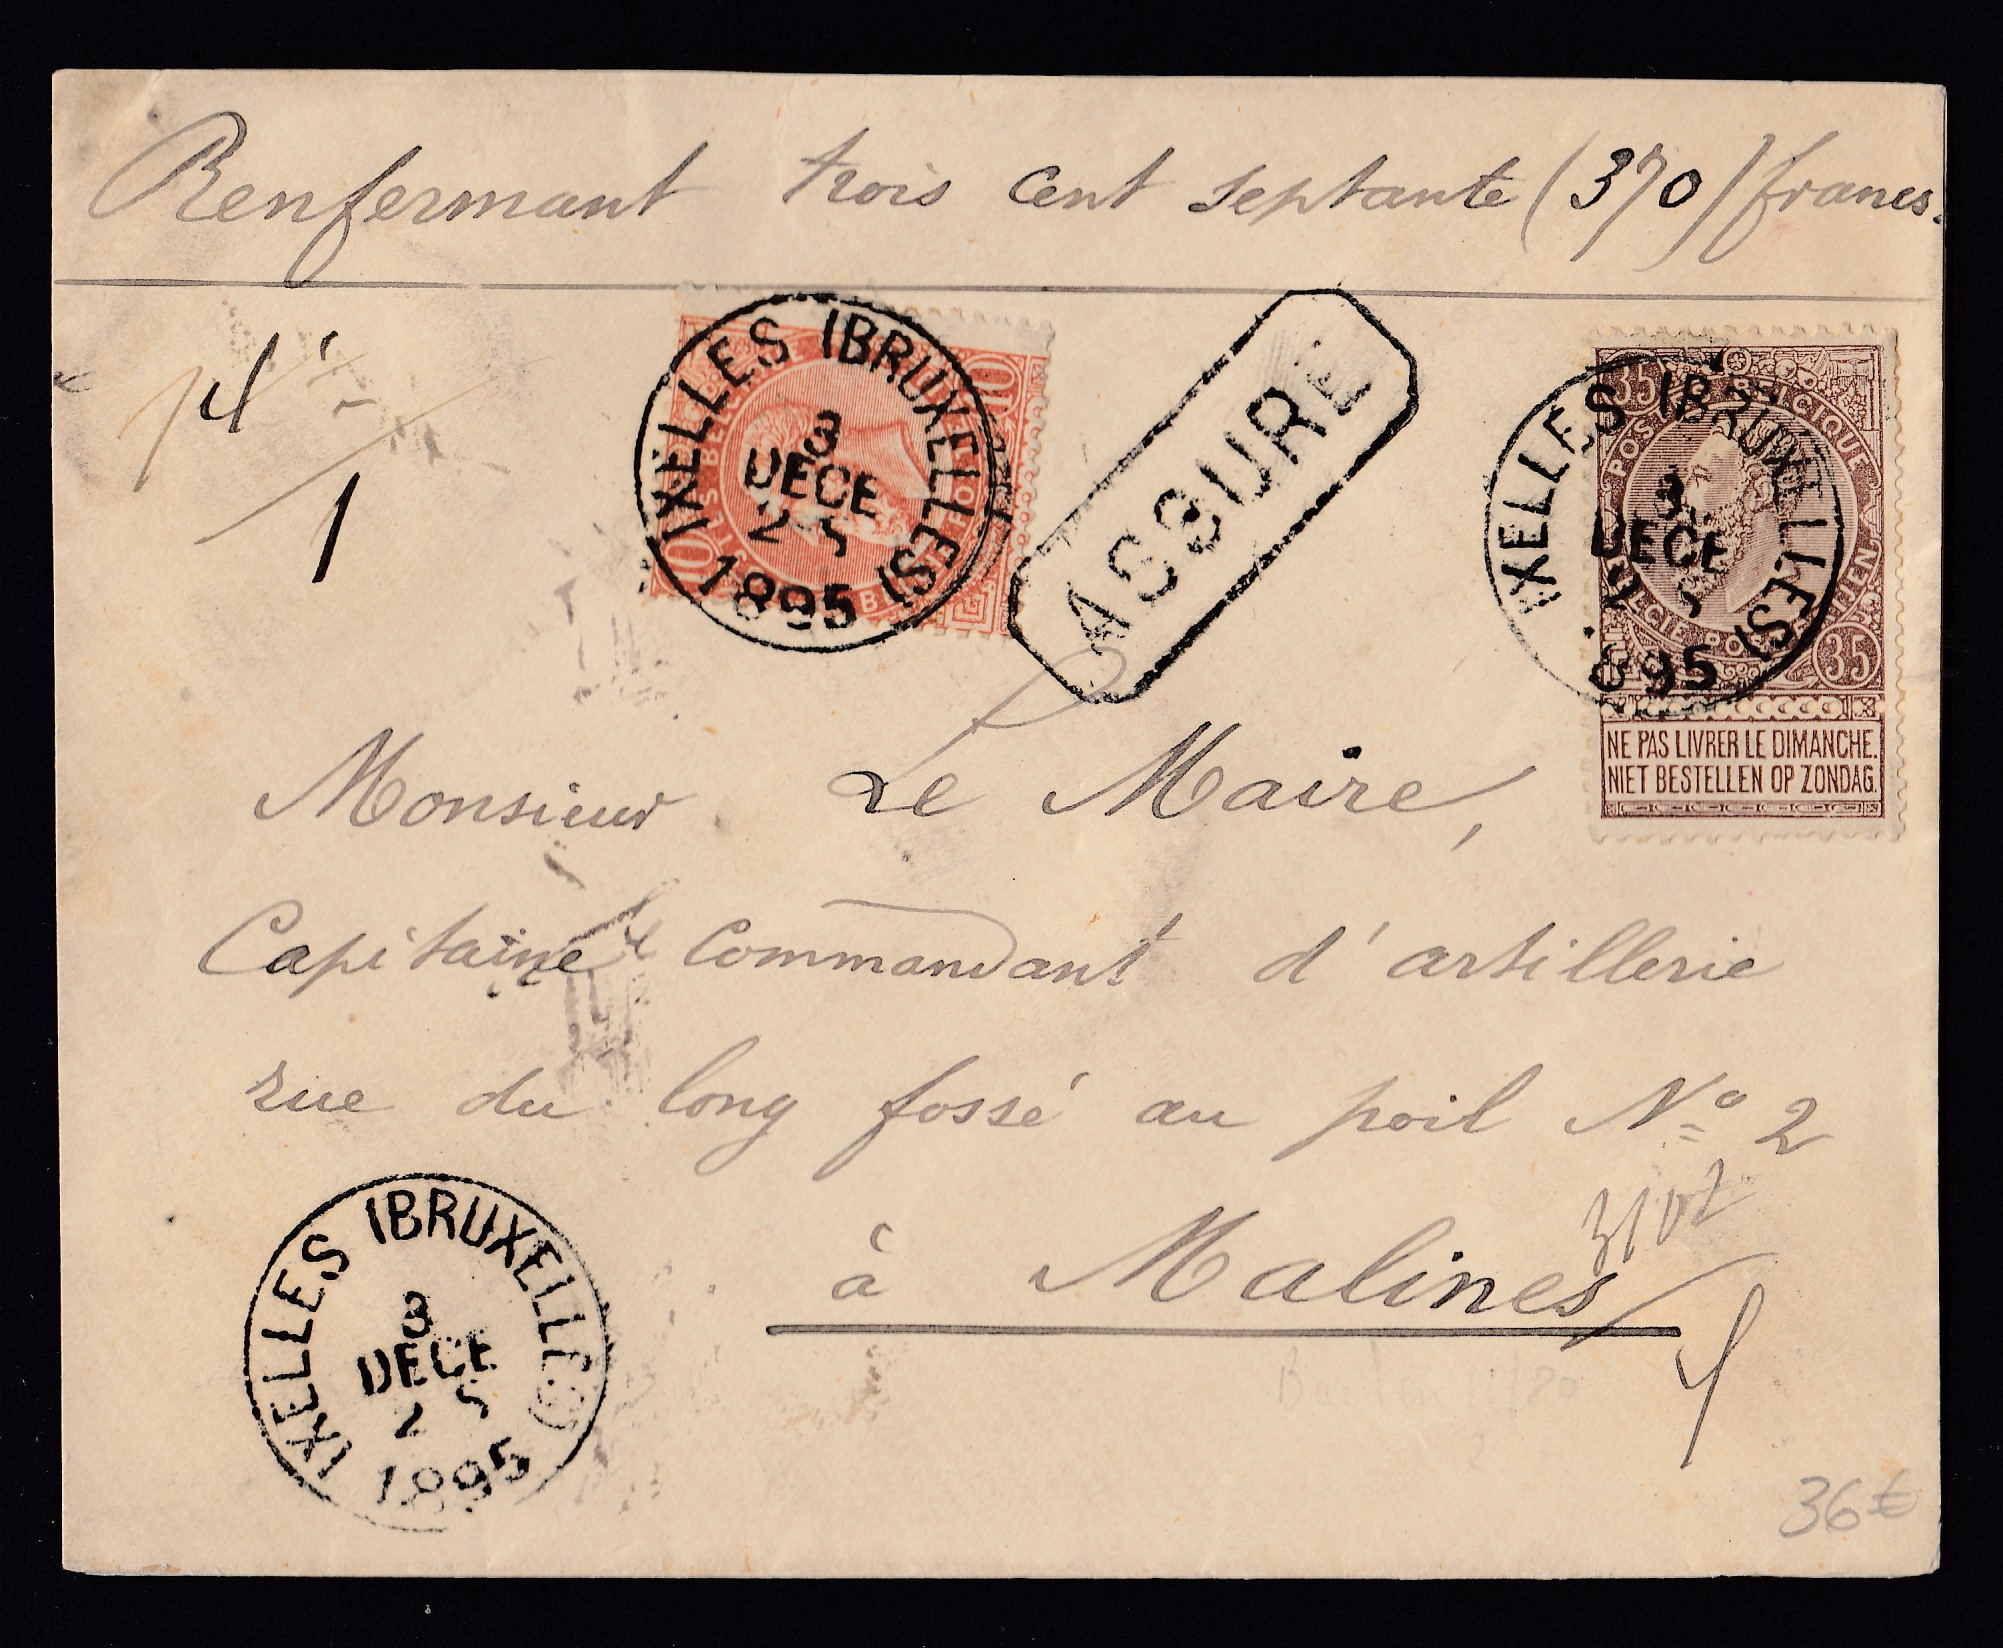 Renfermant trois cent septante (370) francs.
14
1
IXELLES (BRUXELLES)
3
DECE
2 5
1895
10
10
ASSURE
IXELLES (BRUXELLES)
3
DECE
2 5
895
35
BELGIQUE
35
NE PAS LIVRER LE DIMANCHE.
NIET BESTELLEN OP ZONDAG.
Monsieur Le Maire,
Capitaine Commandant d'artillerie
rue du long fossé au poil Nº 2
à Malines
IXELLES (BRUXELLES)
3
DECE
2 5
1895
36€